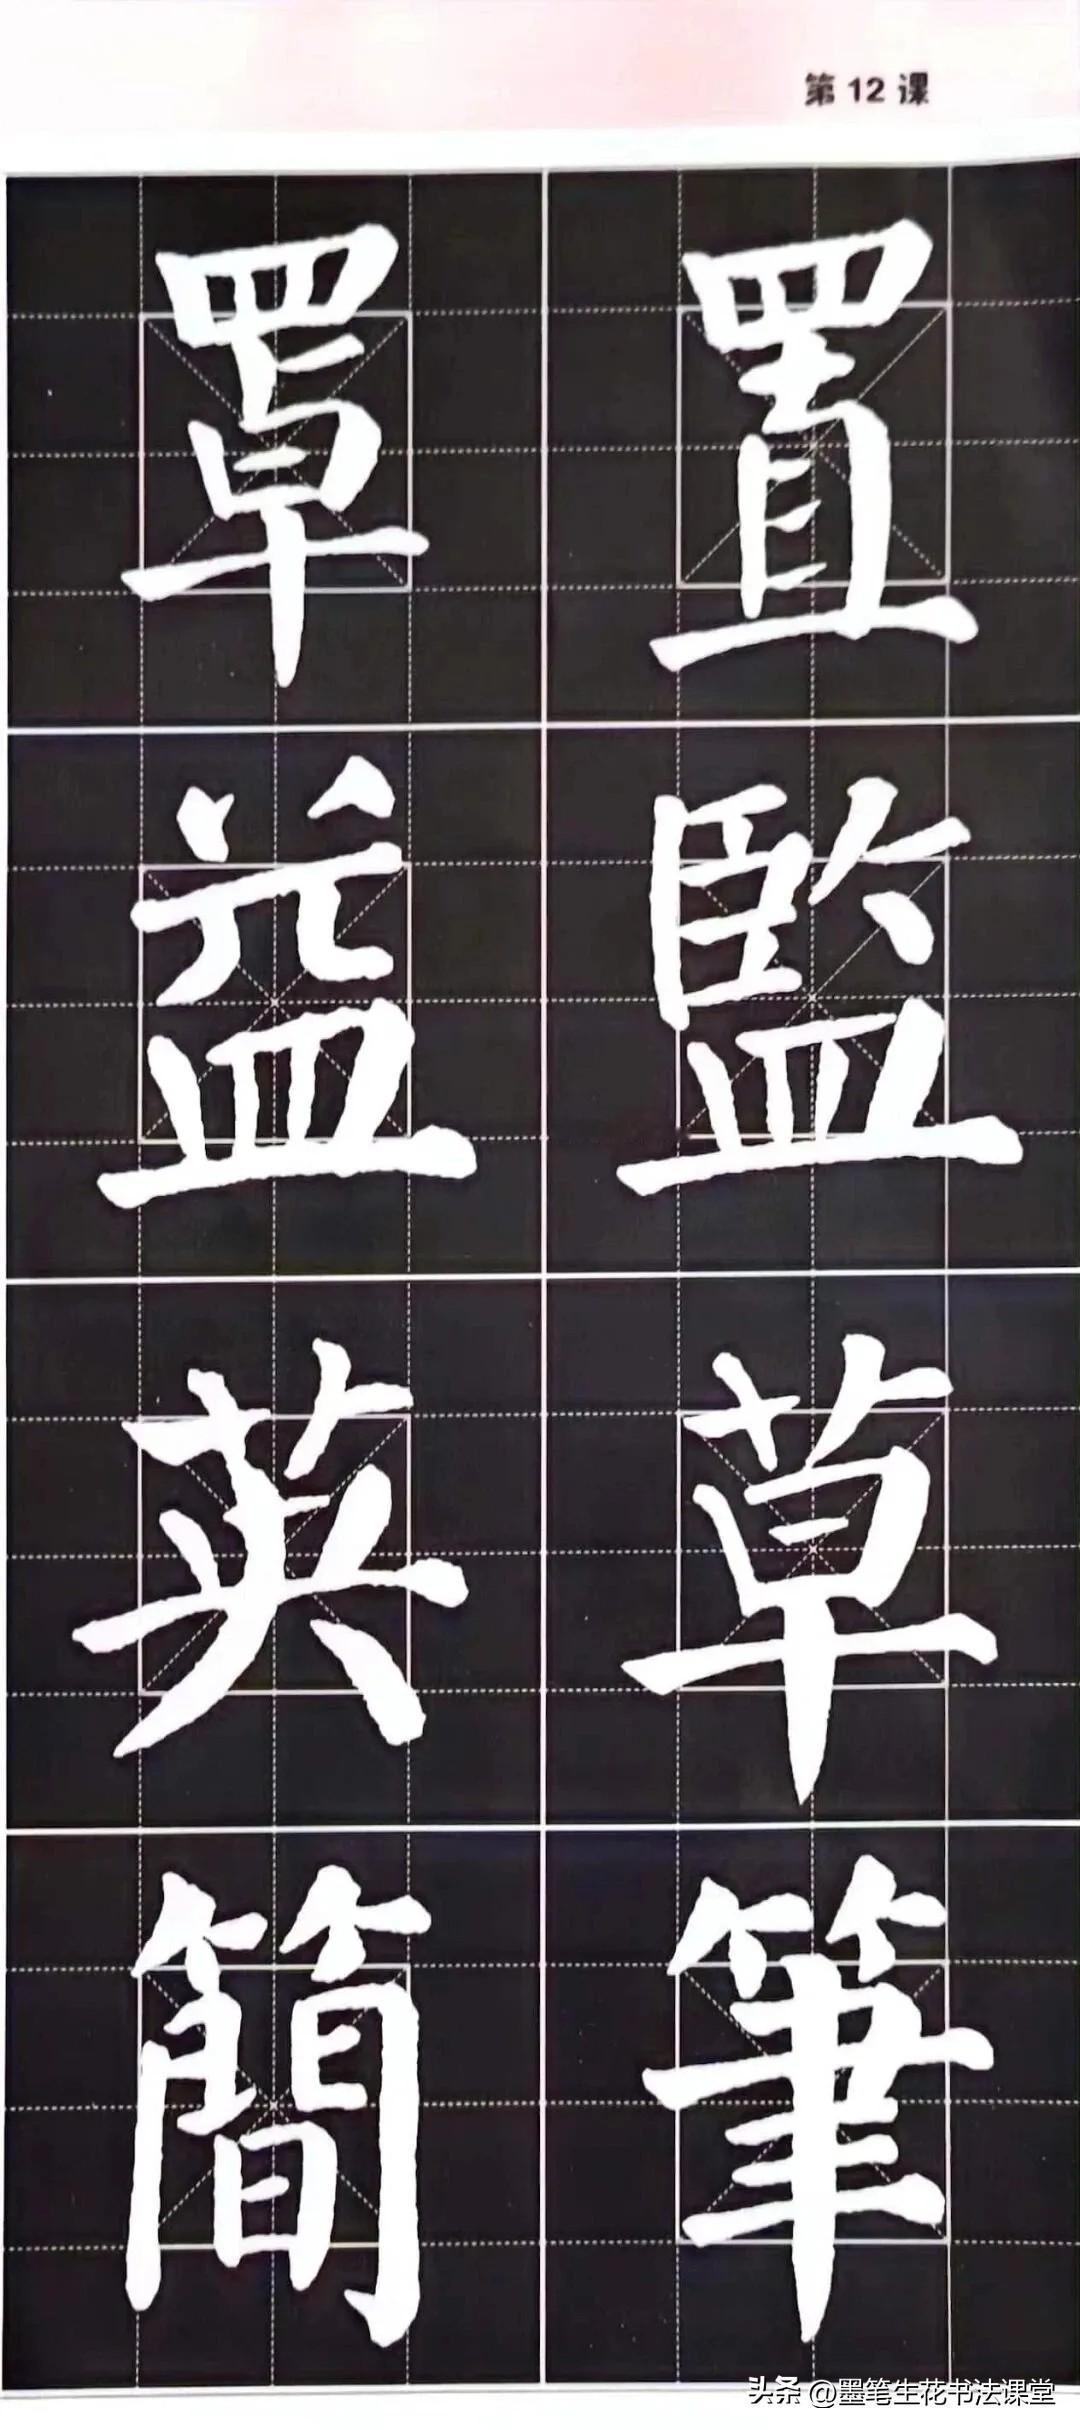 第12课
置監草筆
罩益英簡
头条 @墨笔生花书法课堂